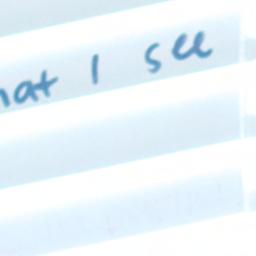 hat I see